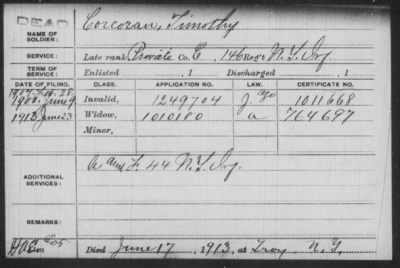 DEAD
NAME OF SOLDIER: Corcoran, Timothy
SERVICE: Late rank Private Co. C, 146 Reg't N.Y. Inf
TERM OF SERVICE: Enlisted , 1 Discharged , 1
DATE OF FILING. CLASS. APPLICATION NO. LAW. CERTIFICATE NO.
1907, Feb. 28.
1900, June 9. Invalid, 1249704 J. age 1011668
1913 June 23 Widow, 1010180 a 764697
Minor,
ADDITIONAL SERVICES: C and F. 44 N.Y. Inf.
REMARKS:
Died June 17, 1913, at Troy N.Y.